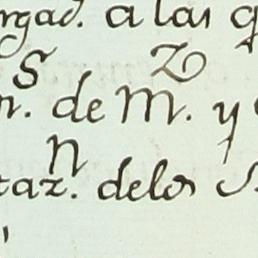 rgad. a las q
n. de M. y
taz. delos S